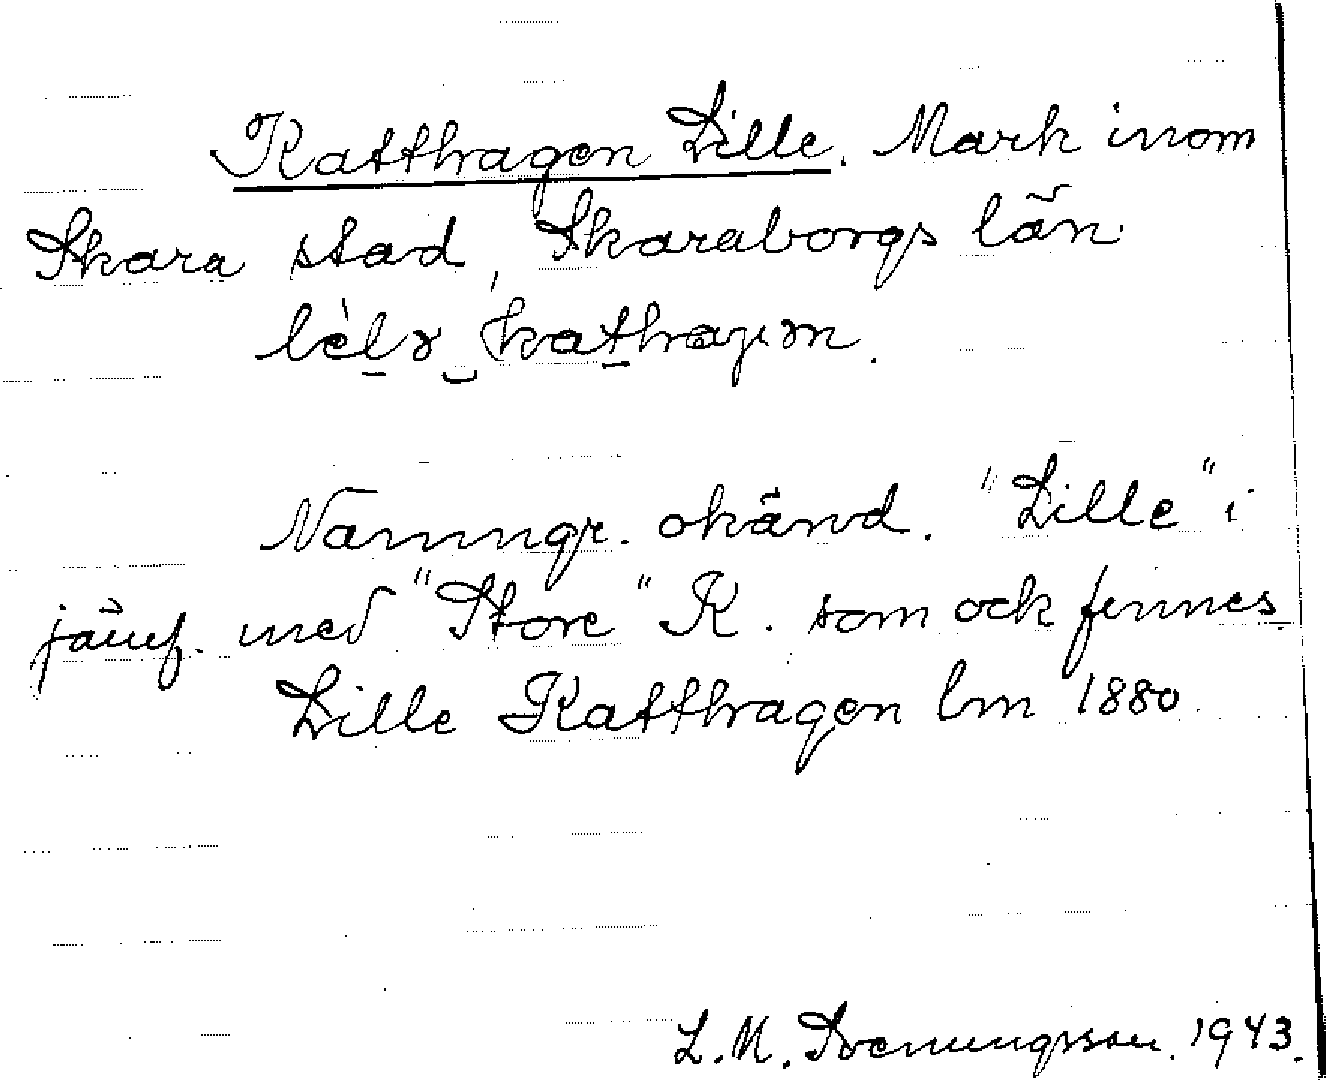 Katthagen Lille. Mark inom
Skara stad, Skaraborgs län
lèlɤ kathaɡɤn.
Namngr. okänd. "Lille" i
jämf. med "Store" K. som ock finnes
Lille Katthagen lm 1880
L. M. Svenungsson. 1943.